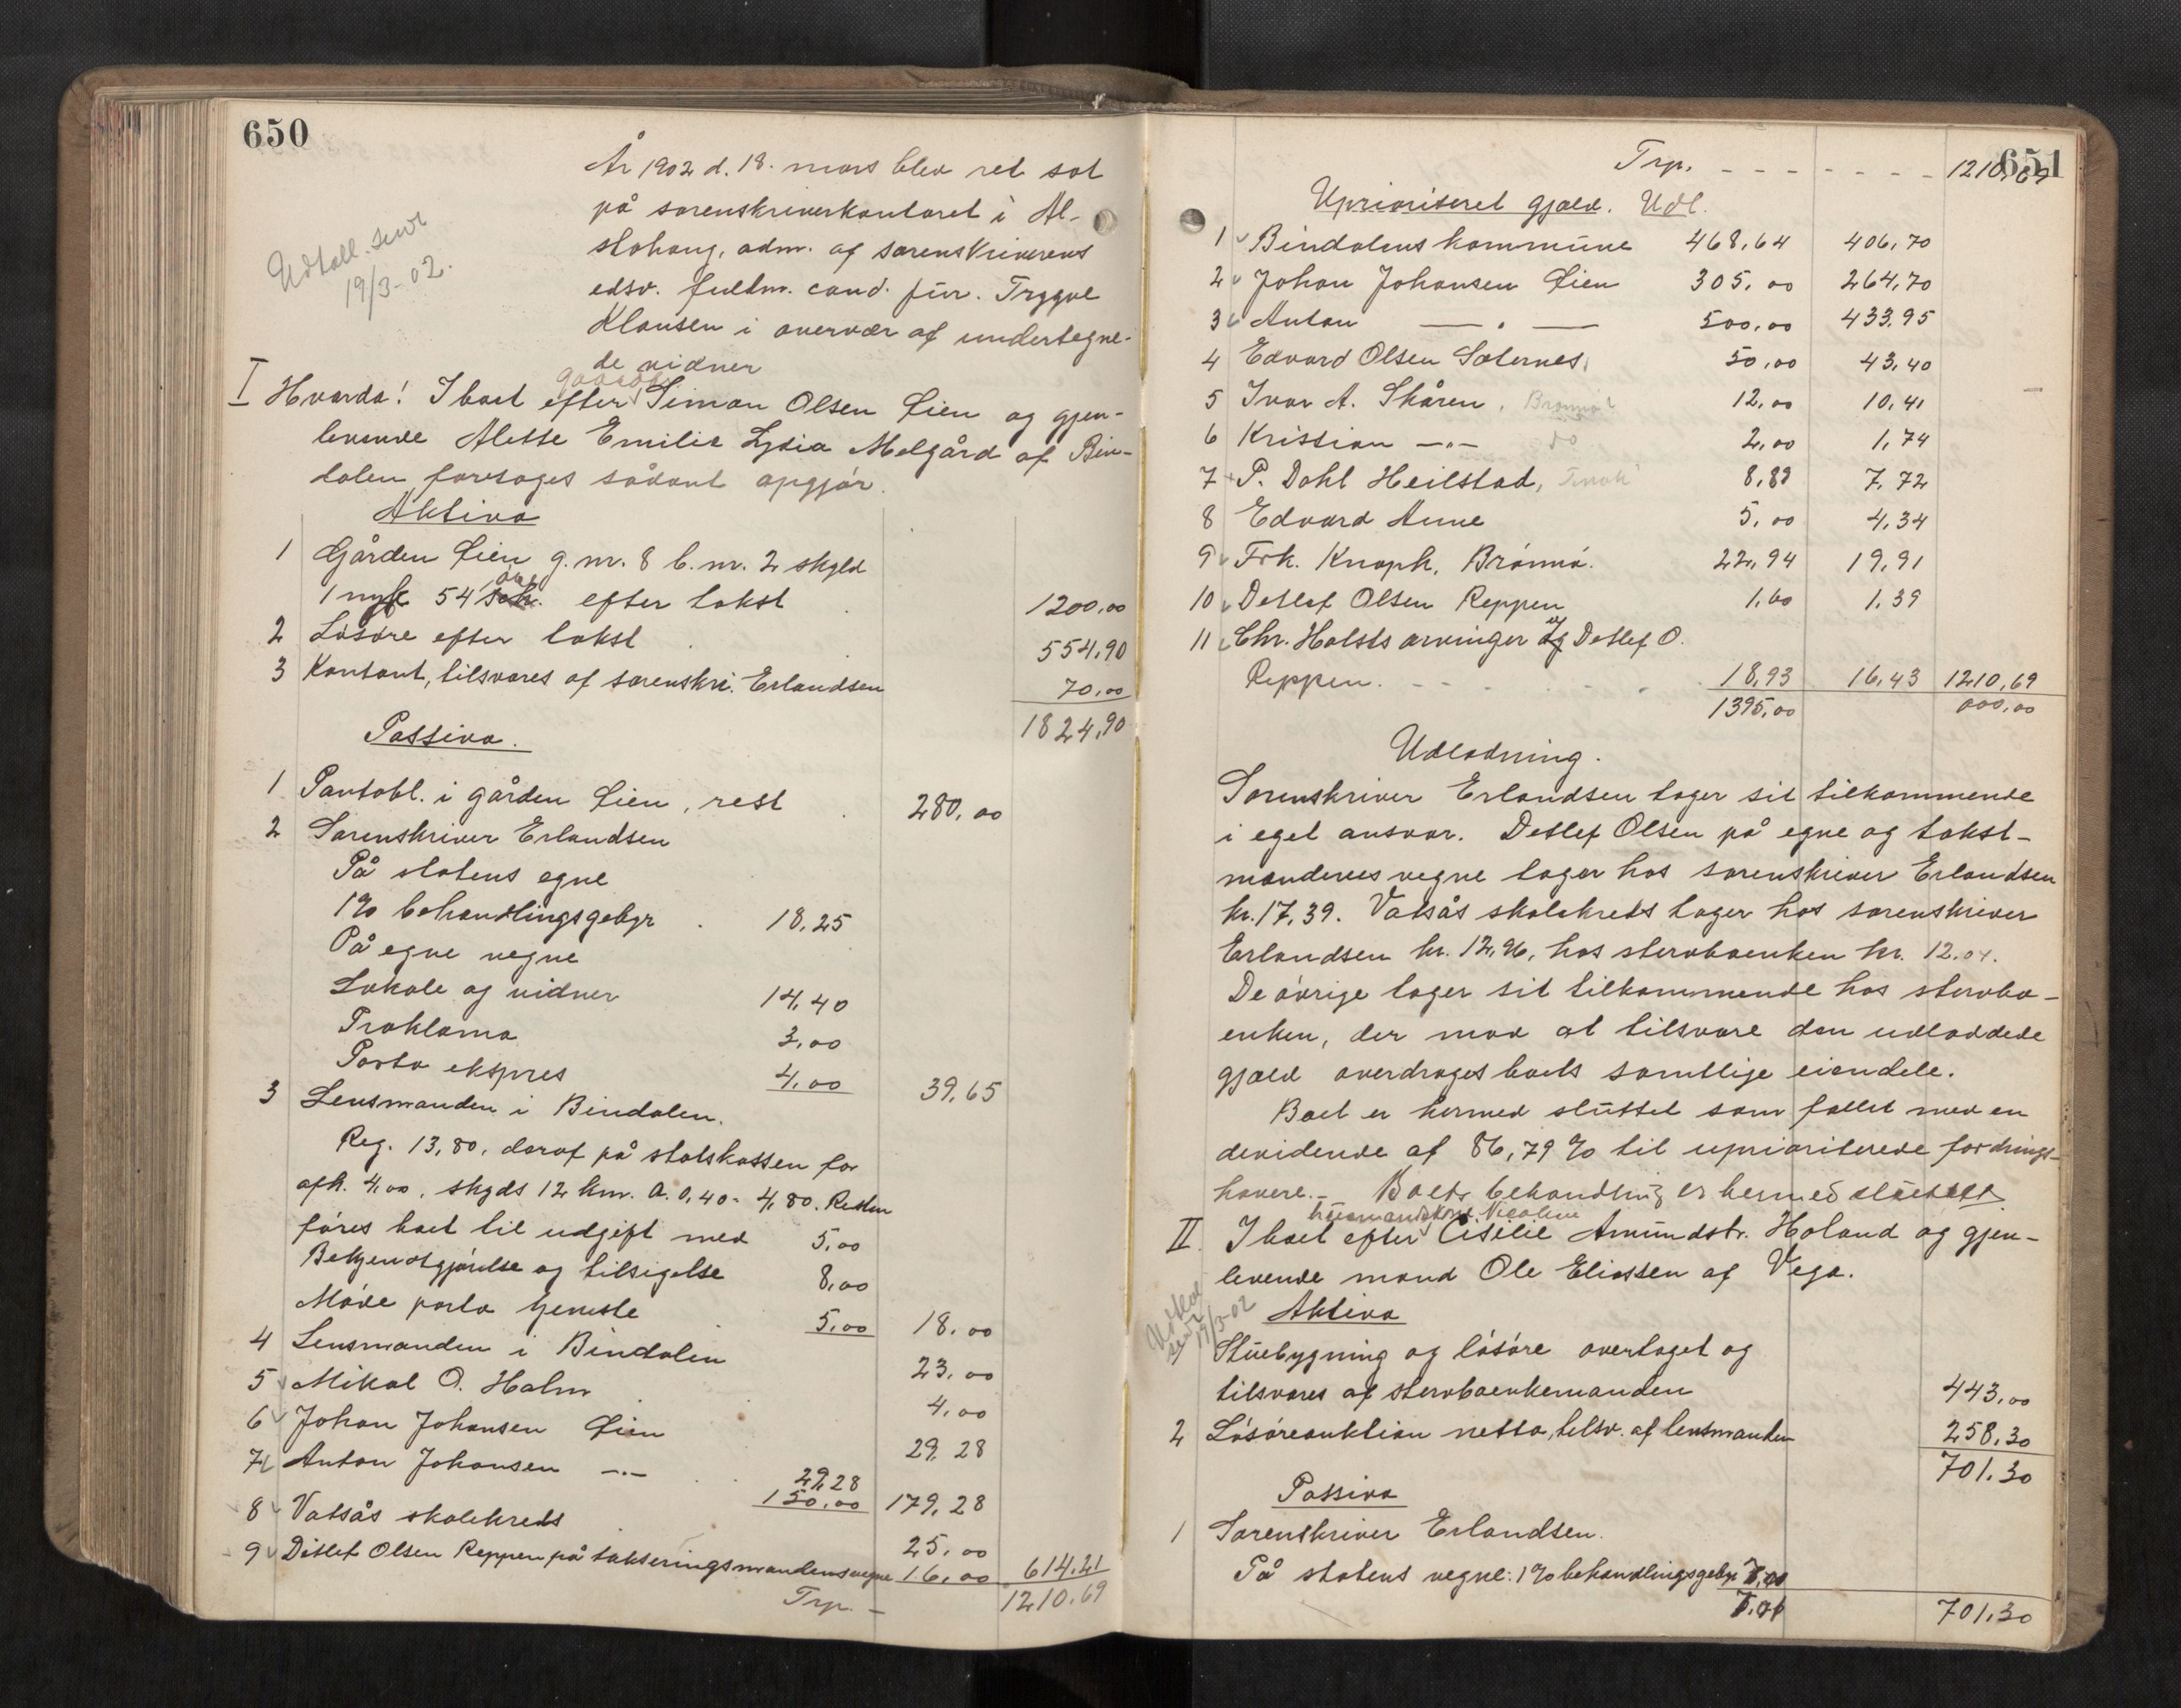 650
År 1902 d. 18. mars blev ret sat
på sorenskriverkontoret i Al-
stahaug, adm. af sorenskriverens
edsv. fuldm. cand. jur. Trygve
Klausen i overvær af undertegne-
de vidner
Udtall. sendt
19/3-02.
I Hvorda! I boet efter gårdbr. Simon Olsen Øien og gjen-
levende Alette Emilie Lydia Melgård af Bin-
dalen foretoges sådant opgjør.
Aktiva
1 Gården Øien g.nr. 8 b.nr. 2 skyld
1 mrk 54 øre efter takst 1200,00
2 Løsøre efter takst 554,90
3 Kontant, tilsvares af sorenskri. Erlandsen 70,00
1824,90
Passiva.
1 Pantobl. i gården Øien, rest 280,00
2 Sorenskriver Erlandsen
På statens egne
1% behandlingsgebyr 18,25
På egne vegne
Lokale og vidner 14,40
Proklama 3,00
Porto ekspres 4,00 39,65
3 Lensmanden i Bindalen.
Reg. 13,80, deraf på statskassen for
afh. 4,00, skyds 12 km. a. 0,40 = 4,80. Resten
føres boet til udgift med 5,00
Bekjendtgjørelse og tilsigelse 8,00
Møde porto tjeneste 5,00 18,00
4 Lensmanden i Bindalen 23,00
5 Mikal O. Holm 4,00
6 Johan Johansen Øien 29,28
7 Anton Johansen —"— 29,28
150,00 179,28
8 Vatsås skolekreds 25,00
9 Ditlef Olsen Reppen på takseringsmændenes vegne 16,00 614,21
Trp. — 1210,69
651
Trp. - - - - - - - 1210,69
Uprioriteret gjæld. Udl.
1 Bindalens kommune 468,64 406,70
2 Johan Johansen Øien 305,00 264,70
3 Anton — " — 500,00 433,95
4 Edvard Olsen Sæternes 50,00 43,40
5 Ivar A. Skåren, Brønnø 12,00 10,41
6 Kristian —"— do 2,00 1,74
7 P. Dahl Heilstad, 8,89 7,72
8 Edvard Aune 5,00 4,34
9 Frk. Knoph, Brønnø. 22,94 19,91
10 Detlef Olsen Reppen 1,60 1,39
11 Chr. Holsts arvinger v/ Detlef O.
Reppen. 18,93 16,43 1210,69
1395,00 000,00
Udlodning.
Sorenskriver Erlandsen tager sit tilkommende
i eget ansvar. Detlef Olsen på egne og takst-
mændenes vegne tager hos sorenskriver Erlandsen
kr. 17,39. Vatsås skolekreds tager hos sorenskriver
Erlandsen kr. 12,96, hos stervboenken kr. 12,04.
De øvrige tager sit tilkommende hos stervbo-
enken, der mod at tilsvare den udloddede
gjæld overdrages boets samtlige eiendele.
Boet er hermed sluttet som fallit med en
devidende af 86,79 % til uprioriterede fordrings-
havere. — Boets behandling er hermed sluttet
II. I boet efter husmandskone Nicoline Cisilie Amundstr. Holand og gjen-
levende mand Ole Eliassen af Vega.
Udtal
sendt 19/3-02
Aktiva
Stuebygning og løsøre overtaget og
tilsvares af stervboenkemanden 443,00
2 Løsøreauktion netto, tilsv. af lensmanden 258,30
701,30
Passiva
1 Sorenskriver Erlandsen.
På statens vegne: 1% behandlingsgebyr 7,01
7,01 701,30